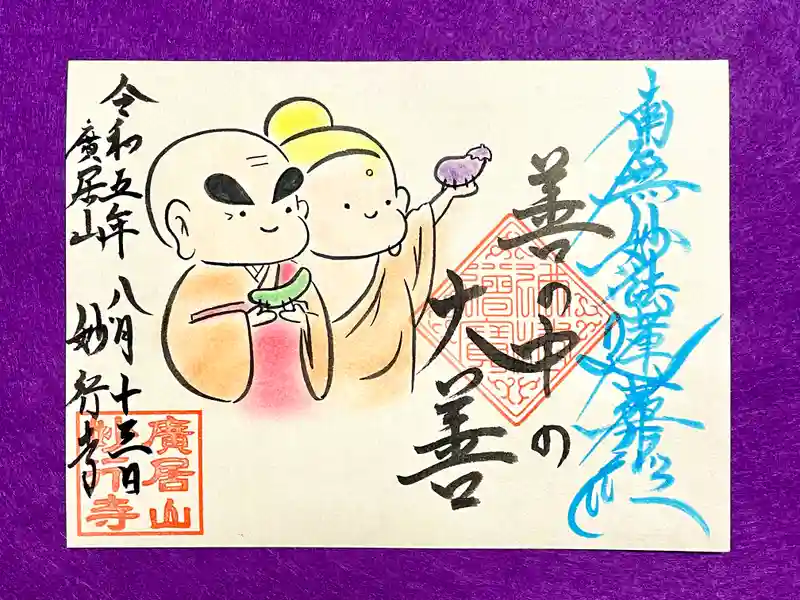 南無妙法蓮華経
善の中の
大善
令和五年 八月十三日
廣居山 妙行寺
廣居山
妙行寺